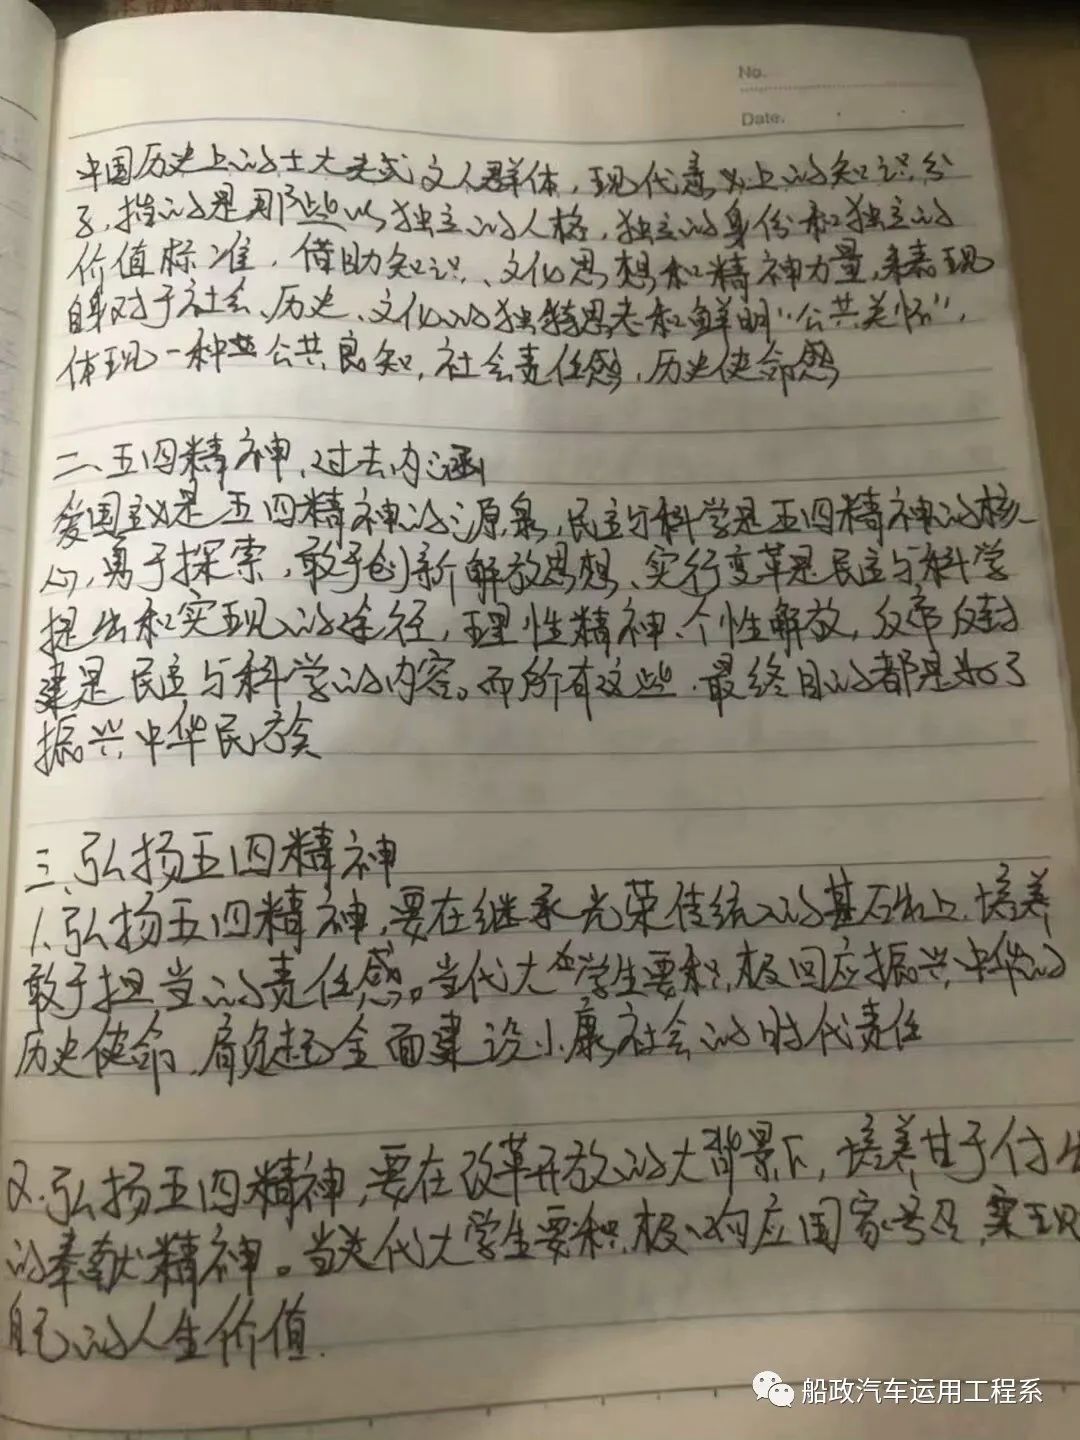 No.
Date.
中国历史上的士大夫或文人群体，现代意义上的知识分
子，指的是那些以独立的人格，独立的身份和独立的
价值标准，借助知识、文化思想和精神力量，来表现
自身对于社会、历史、文化的独特思考和鲜明“公共关怀”，
体现一种公共良知，社会责任感，历史使命感
二、五四精神、过去内涵
爱国主义是五四精神的源泉，民主与科学是五四精神的核
心，勇于探索，敢于创新解放思想、实行变革是民主与科学
提出和实现的途径，理性精神、个性解放，反帝反封
建是民主与科学的内容。而所有这些，最终目的都是为了
振兴中华民族
三、弘扬五四精神
1、弘扬五四精神，要在继承光荣传统的基石出上，培养
敢于担当的责任感。当代大学生要积极回应振兴中华的
历史使命，肩负起全面建设小康社会的时代责任
2.弘扬五四精神，要在改革开放的大背景下，培养甘于付出
的奉献精神。当代大学生要积极响应国家号召，实现
自己的人生价值.
船政汽车运用工程系